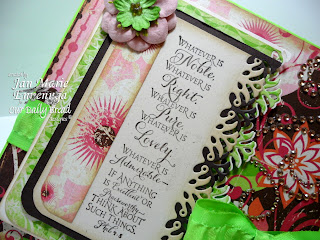 Jan Marie
Our Daily Bread
WHATEVER IS
Noble,
WHATEVER IS
Right,
WHATEVER IS
Pure
WHATEVER IS
Lovely
WHATEVER IS
Admirable
IF ANYTHING
IS Excellent OR
Praiseworthy
THINK ABOUT
SUCH THINGS.